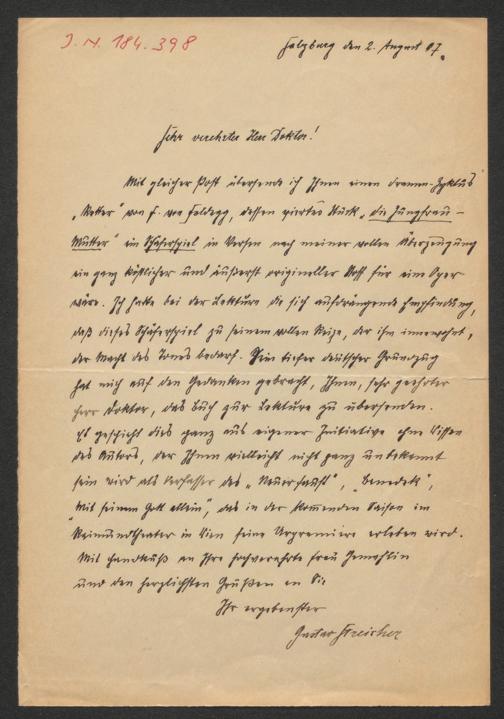 J. N. 184.398
Salzburg den 2. August 07.
Sehr verehrter Herr Doktor!
Mit gleicher Post übersende ich Ihnen einen Dramen-Zyklus
„Retter“ von F. von Feldegg, dessen viertes Stück „die Jungfrau-
Mutter“ ein Schäferspiel in Versen nach meiner vollen Überzeugung
ein ganz köstlicher und äußerst origineller Stoff für eine Oper
wäre. Ich hatte bei der Lektüre die sich aufdrängende Empfindung,
daß dieses Schäferspiel zu seinem vollen Reize, der ihm innewohnt,
der Macht des Tones bedarf. Sein tiefer deutscher Grundzug
hat mich auf den Gedanken gebracht, Ihnen, sehr geehrter
Herr Doktor, das Buch zur Lektüre zu übersenden.
Es geschieht dies ganz aus eigener Initiative ohne Wissen
des Autors, der Ihnen vielleicht nicht ganz unbekannt
sein wird als Verfasser des „Neuer Faust“, „Benedek“,
„Mit seinem Gott allein“, das in der kommenden Saison im
Raimundtheater in Wien seine Urpremière erleben wird.
Mit Handkuß an Ihre hochverehrte Frau Gemahlin
und den herzlichsten Grüßen an Sie
Ihr ergebenster
Gustav Streicher